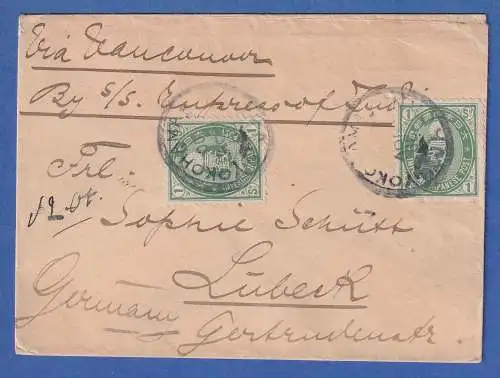 Via Vancouver
By s/s. Empress of India
Frl.
Sophie Schütt
Lübeck
Germany
Gertrudenstr.
YOKOHAMA
1 S
1 S